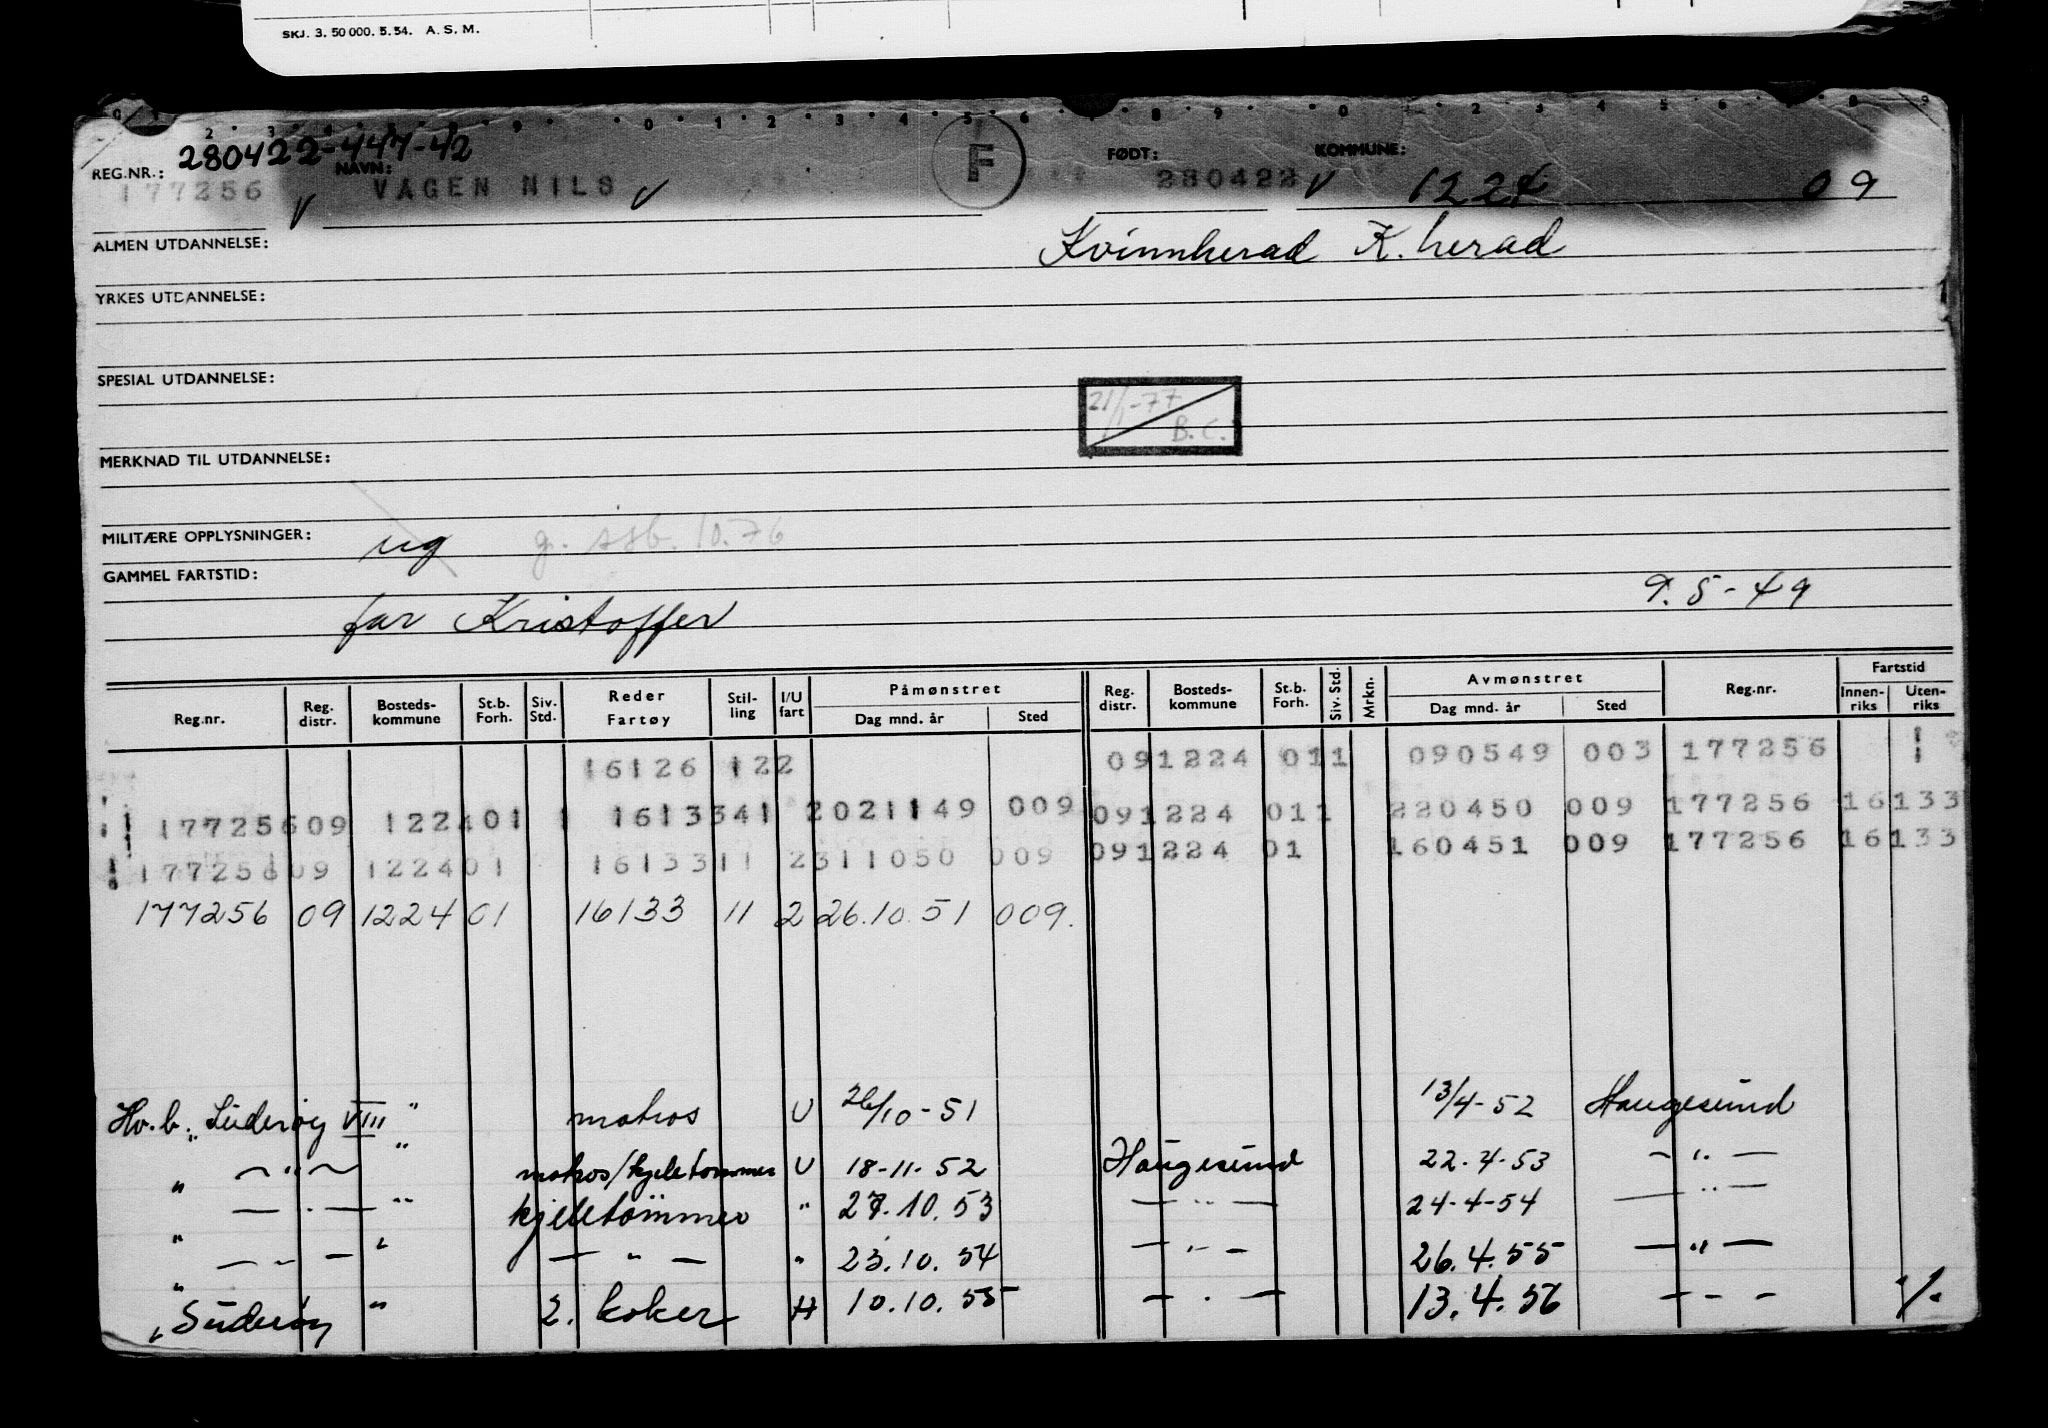 SKJ. 3. 50 000. 5. 54. A. S. M.
280422-447-42
REG.NR.: NAVN: F FØDT: KOMMUNE:
177256 V VAGEN NILS V 280422 V 1224 09
ALMEN UTDANNELSE: Kvinnherad K. herad
YRKES UTDANNELSE:
SPESIAL UTDANNELSE:
21/1-77
B.C.
MERKNAD TIL UTDANNELSE:
MILITÆRE OPPLYSNINGER: ug 10.76
GAMMEL FARTSTID:
9.5-49
far Kristoffer
Reg.nr. Reg. distr. Bosteds-kommune St.b. Forh. Siv. Std. Reder Fartøy Stil-ling I/U fart Påmønstret Dag mnd. år Sted Reg. distr. Bosteds-kommune St.b. Forh. Siv. Std. Mrkn. Avmønstret Dag mnd. år Sted Reg.nr. Fartstid Innen-riks Uten-riks
16126 122 091224 011 090549 003 177256
177256 09 1224 01 1 16133 41 2 021149 009 091224 011 220450 009 177256 16133
177256 09 1224 01 16133 11 2 311050 009 091224 01 160451 009 177256 16133
177256 09 1224 01 16133 11 2 26.10.51 009.
Hv.b. „Suderøy VIII" matros U 26/10-51 13/4-52 Haugesund
„ —"— " matros/kjeletømmer U 18-11-52 Haugesund 22.4-53 —"—
„ —"— " kjeletømmer " 27.10.53 —"— 24-4-54 —"—
„ —"— " —"— " 23.10.54 —"— 26.4.55 —"—
„Suderøy " 2. koker H 10.10.55 —"— 13.4.56 —"— %